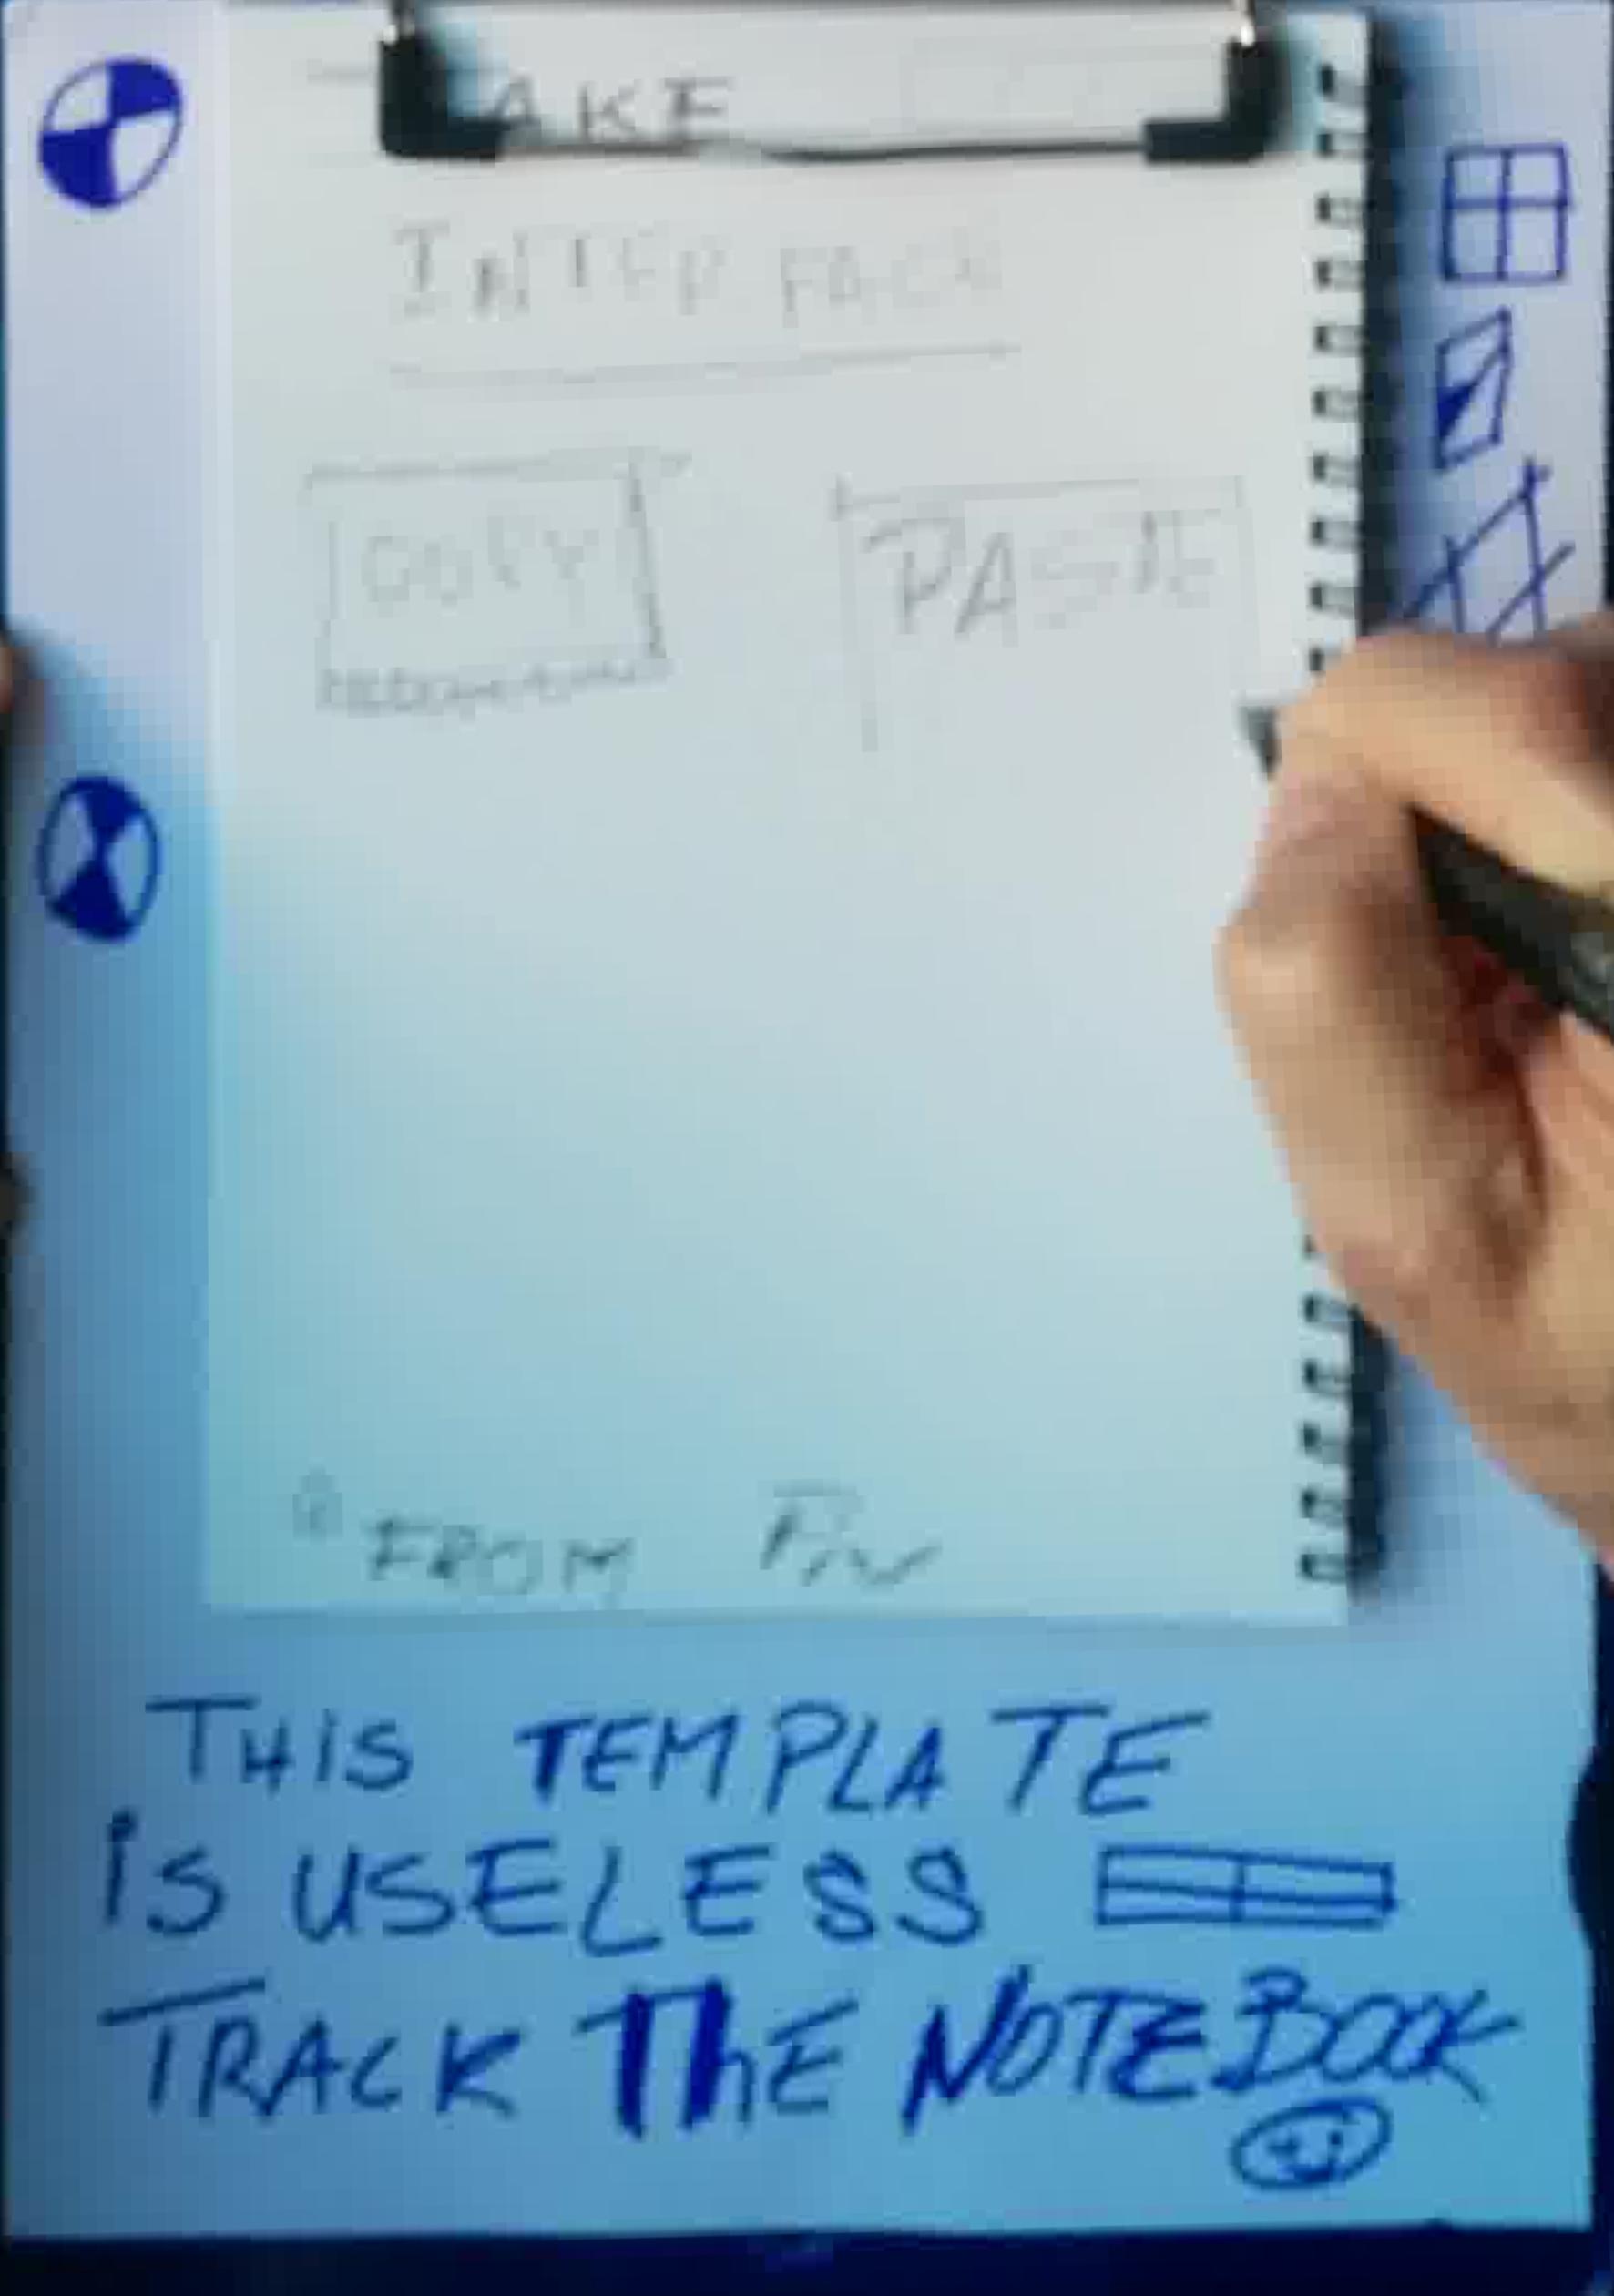 AKE
INTERFACE
COPY PASTE
FROM
THiS TEMPLATE
iS USELESS
TRACK ThE NOTEBOOK